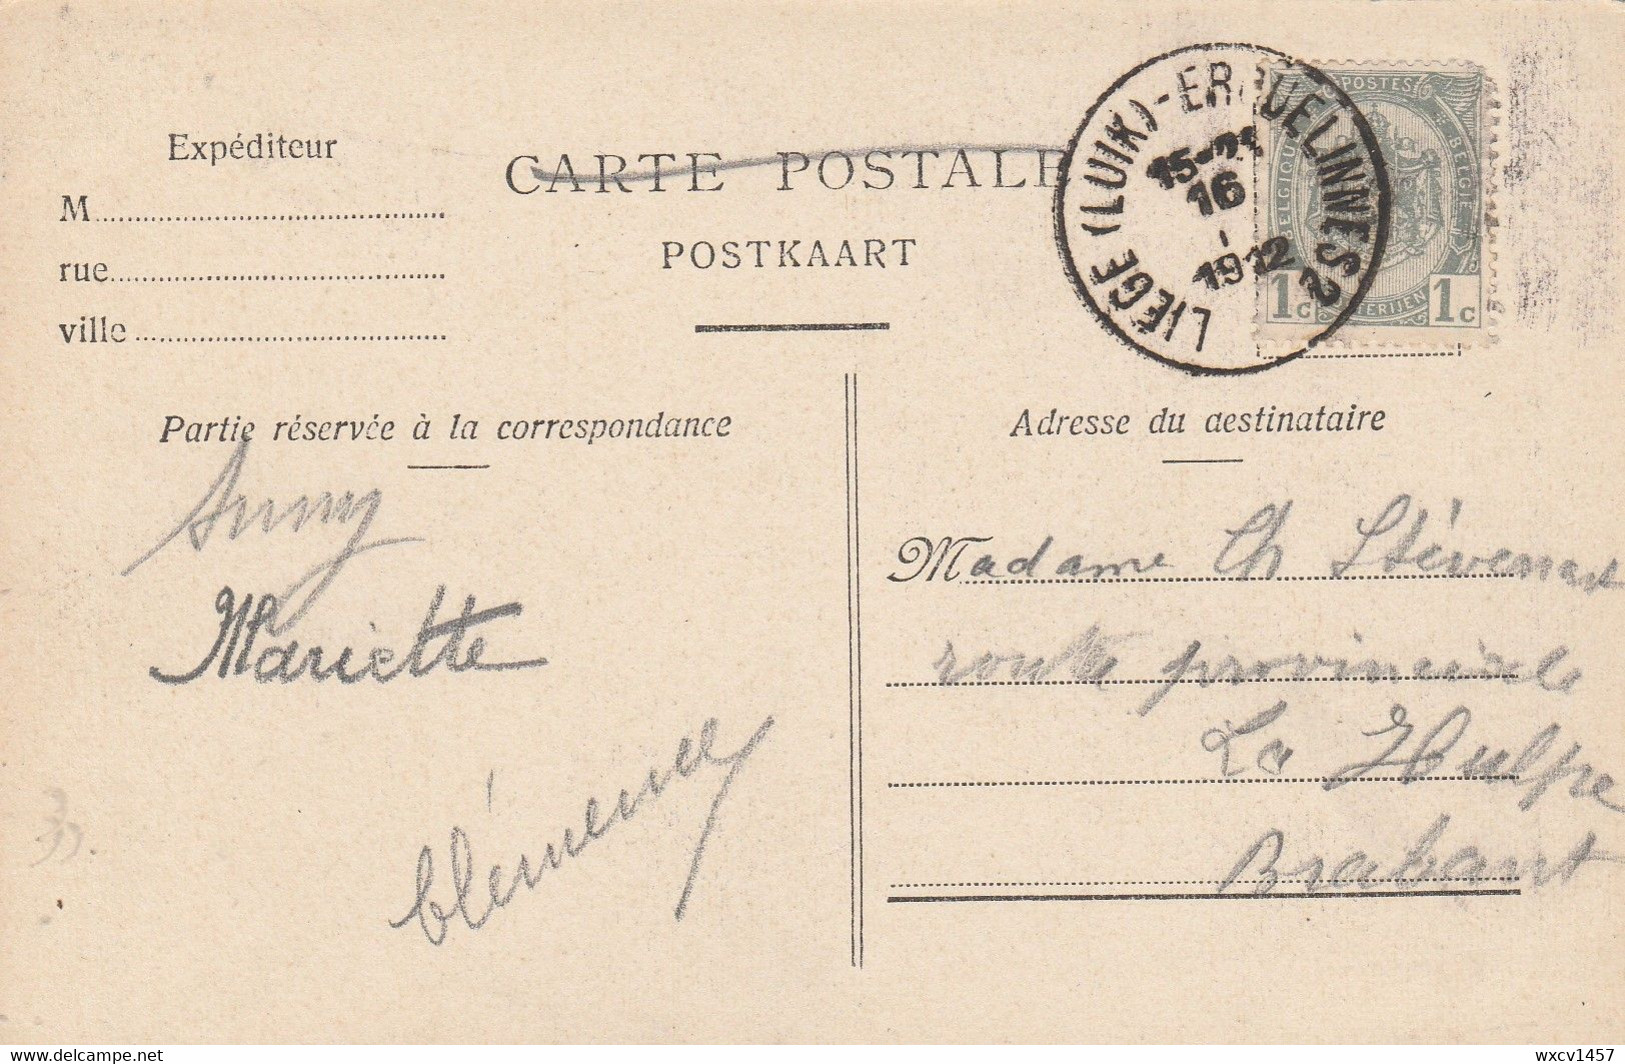 Expéditeur
M
rue
ville
CARTE POSTALE
POSTKAART
LIEGE (LUIK) - ERQUELINNES 2
16
1912
POSTES
BELGIQUE
BELGIE
1c 1c
Partie réservée à la correspondance
Adresse du destinataire
Mariette
Madame Ch Stévenart
route provinciale
La Hulpe
Brabant
wxcv1457